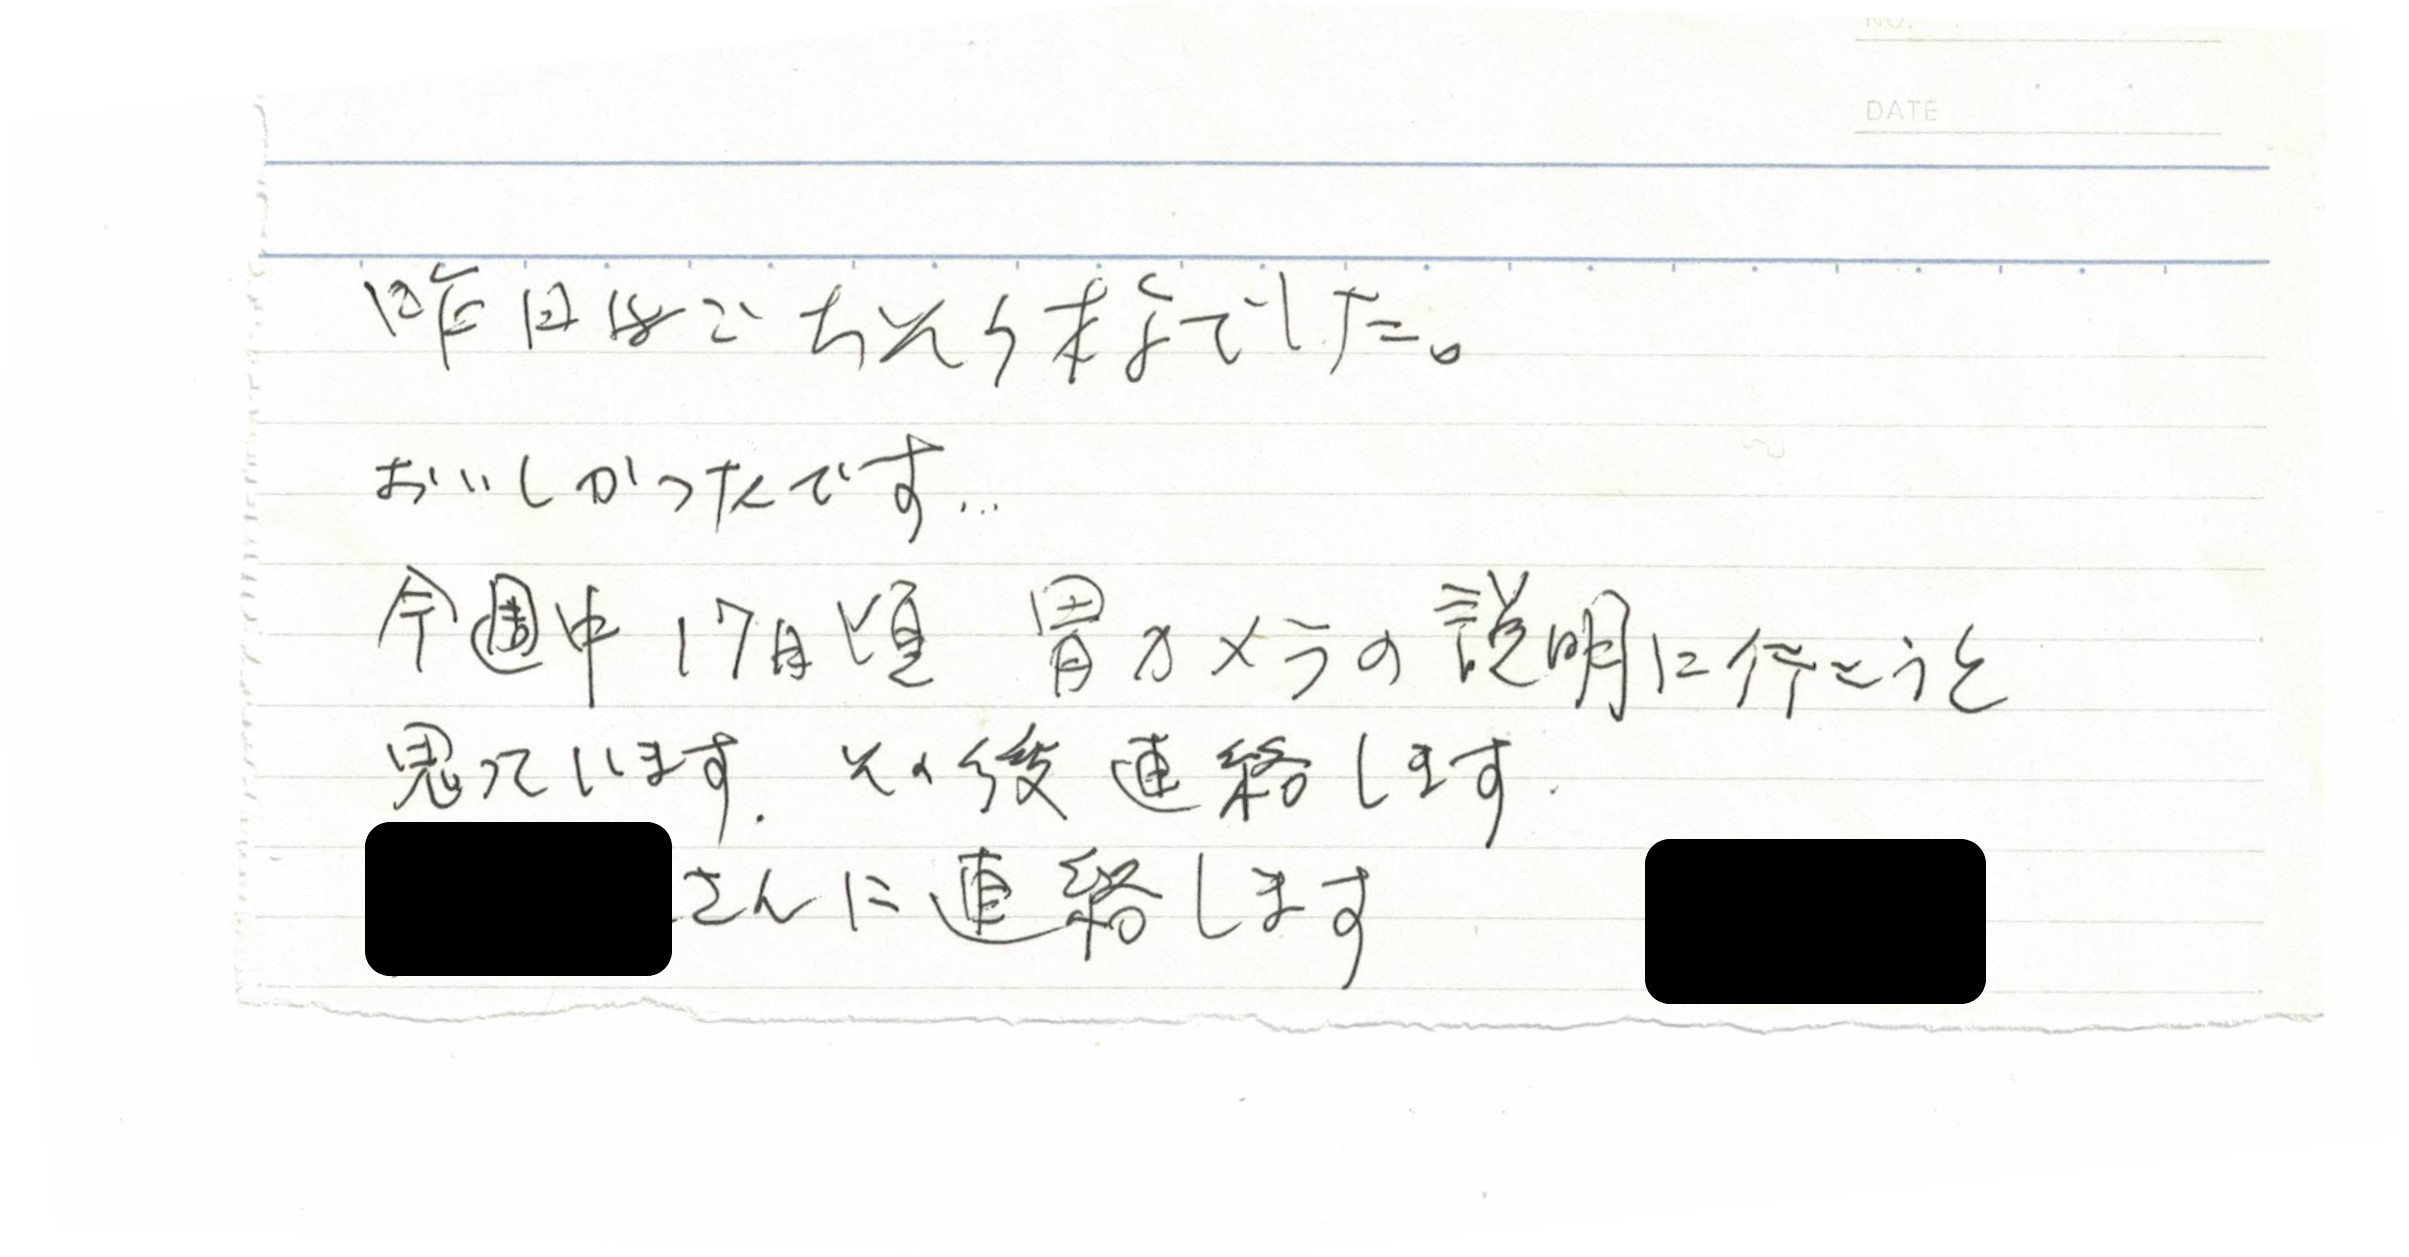 NO.
DATE
昨日はごちそう様でした。
おいしかったです…
今週中17日頃 胃カメラの説明に行こうと
思っています. その後連絡します.
さんに連絡します